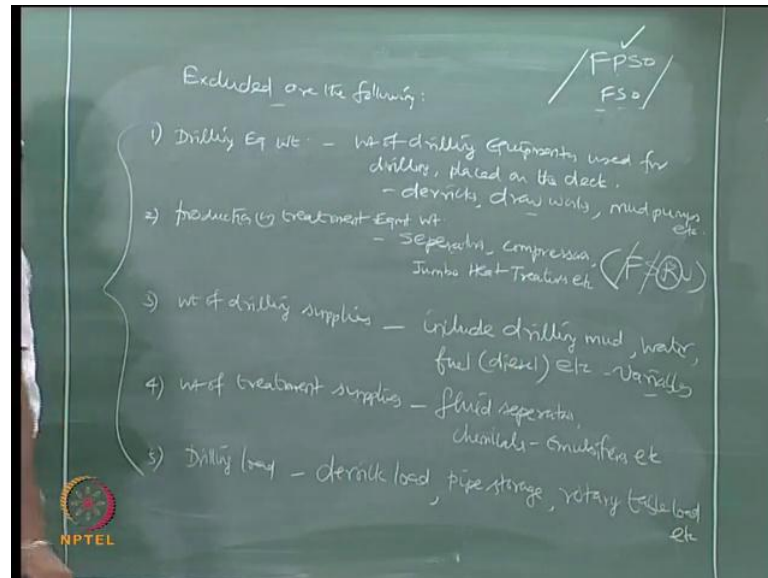 FPSO
FSO
Excluded are the following:
1) Drilling Eq Wt. - wt of drilling equipments used for
drilling, placed on the deck.
- derricks, draw works, mud pumps
etc.
2) production treatment Eqmt wt.
- seperators, compressors,
Jumbo Heat Treaters etc (FSRU)
3) wt of drilling supplies - include drilling mud, water,
fuel (diesel) etc - Variables
4) wt of treatment supplies - fluid seperators,
chemicals - emulsifiers etc
5) Drilling load - derrick load, pipe storage, rotary table load
etc
NPTEL